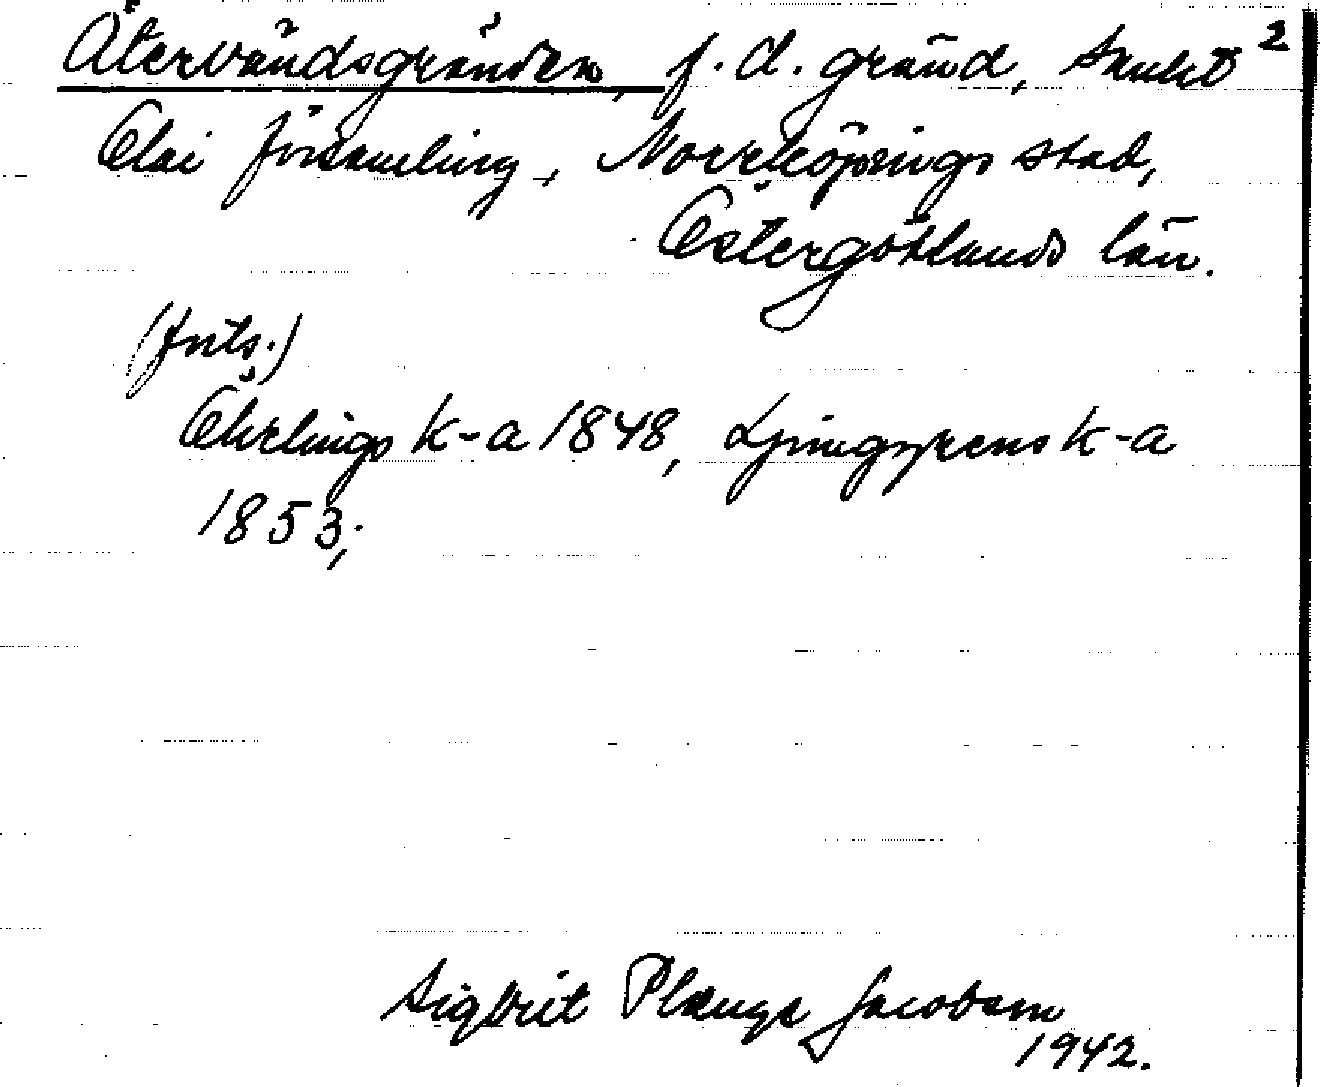 Återvändsgränden, f.d. gränd, Sankt 2
Olai församling, Norrköpings stad,
Östergötlands län.
(forts.)
Öhrlings k-a 1848, Ljunggrens k-a
1853;
Sigbrit Plænge Jacobson
1942.